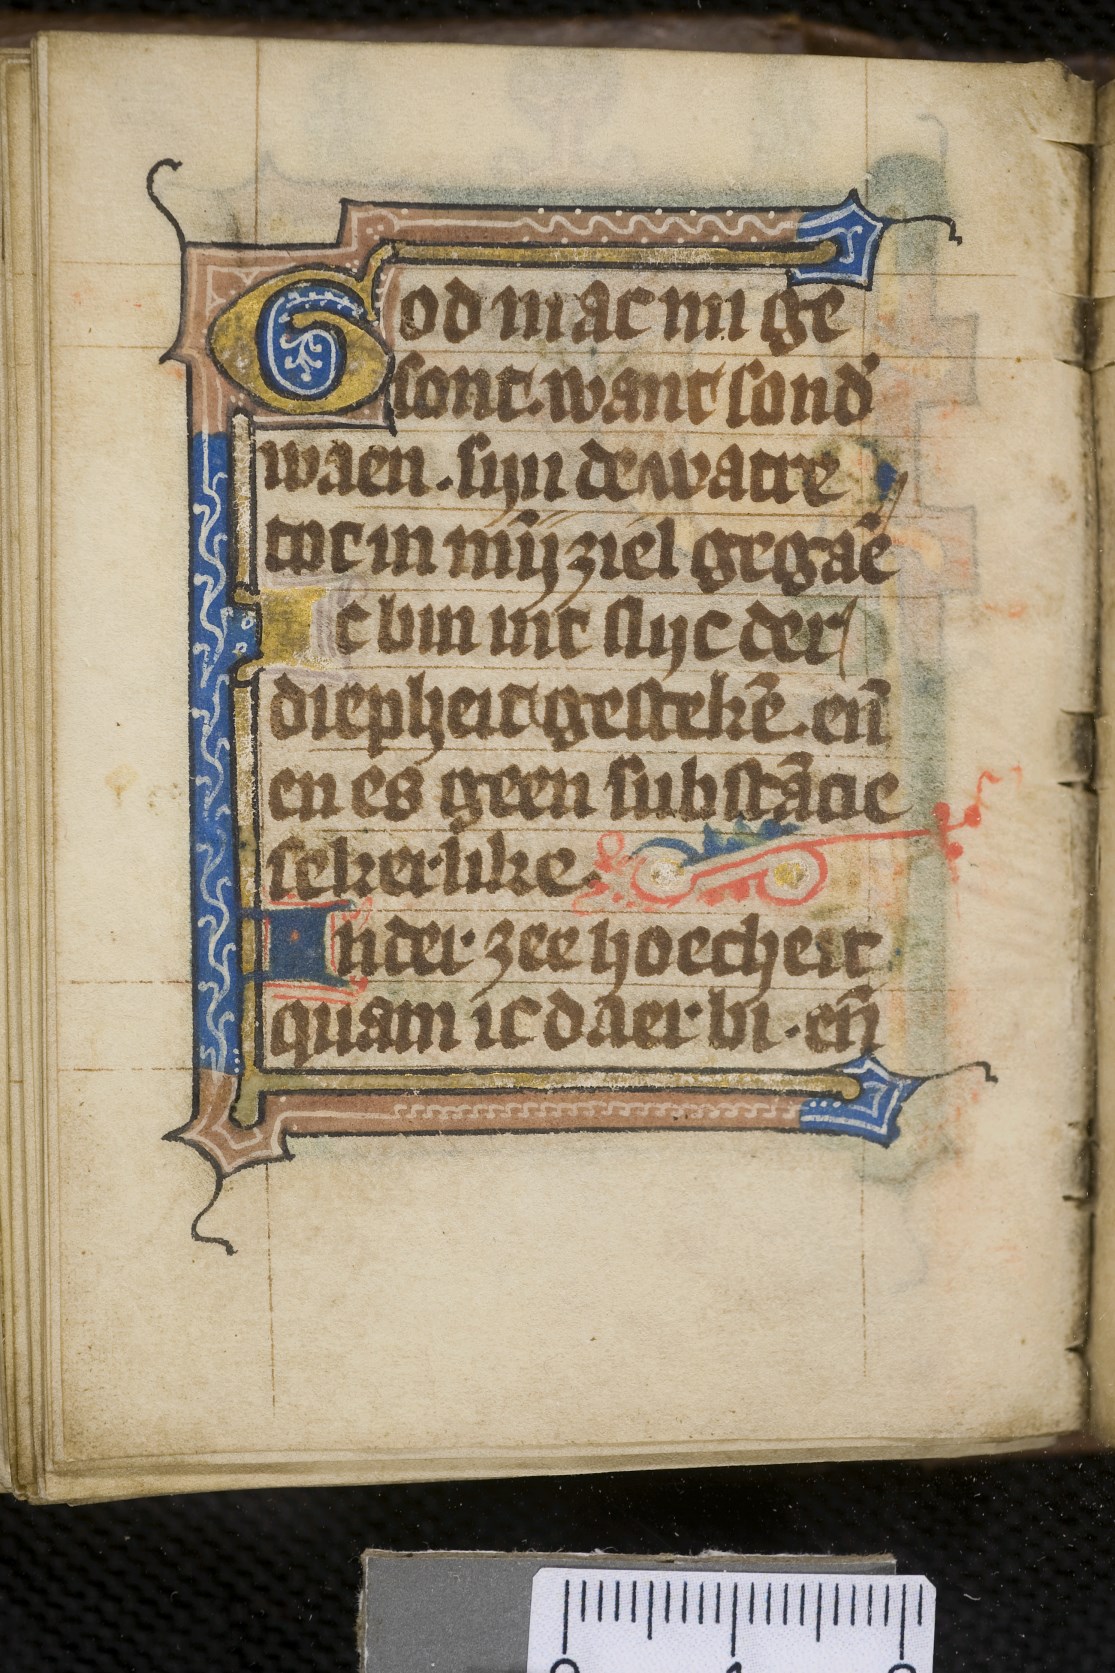 God mac mi ge
sont. want sond'
waen. sijn de watre
tot in mı̄j ziel gegaē
Ic bin int slijc der
diepheit gestekē. en̄
en es geen substācie
sekerlike.
In der zee hoecheit
quam ic daer bi. en̄
0 1 2